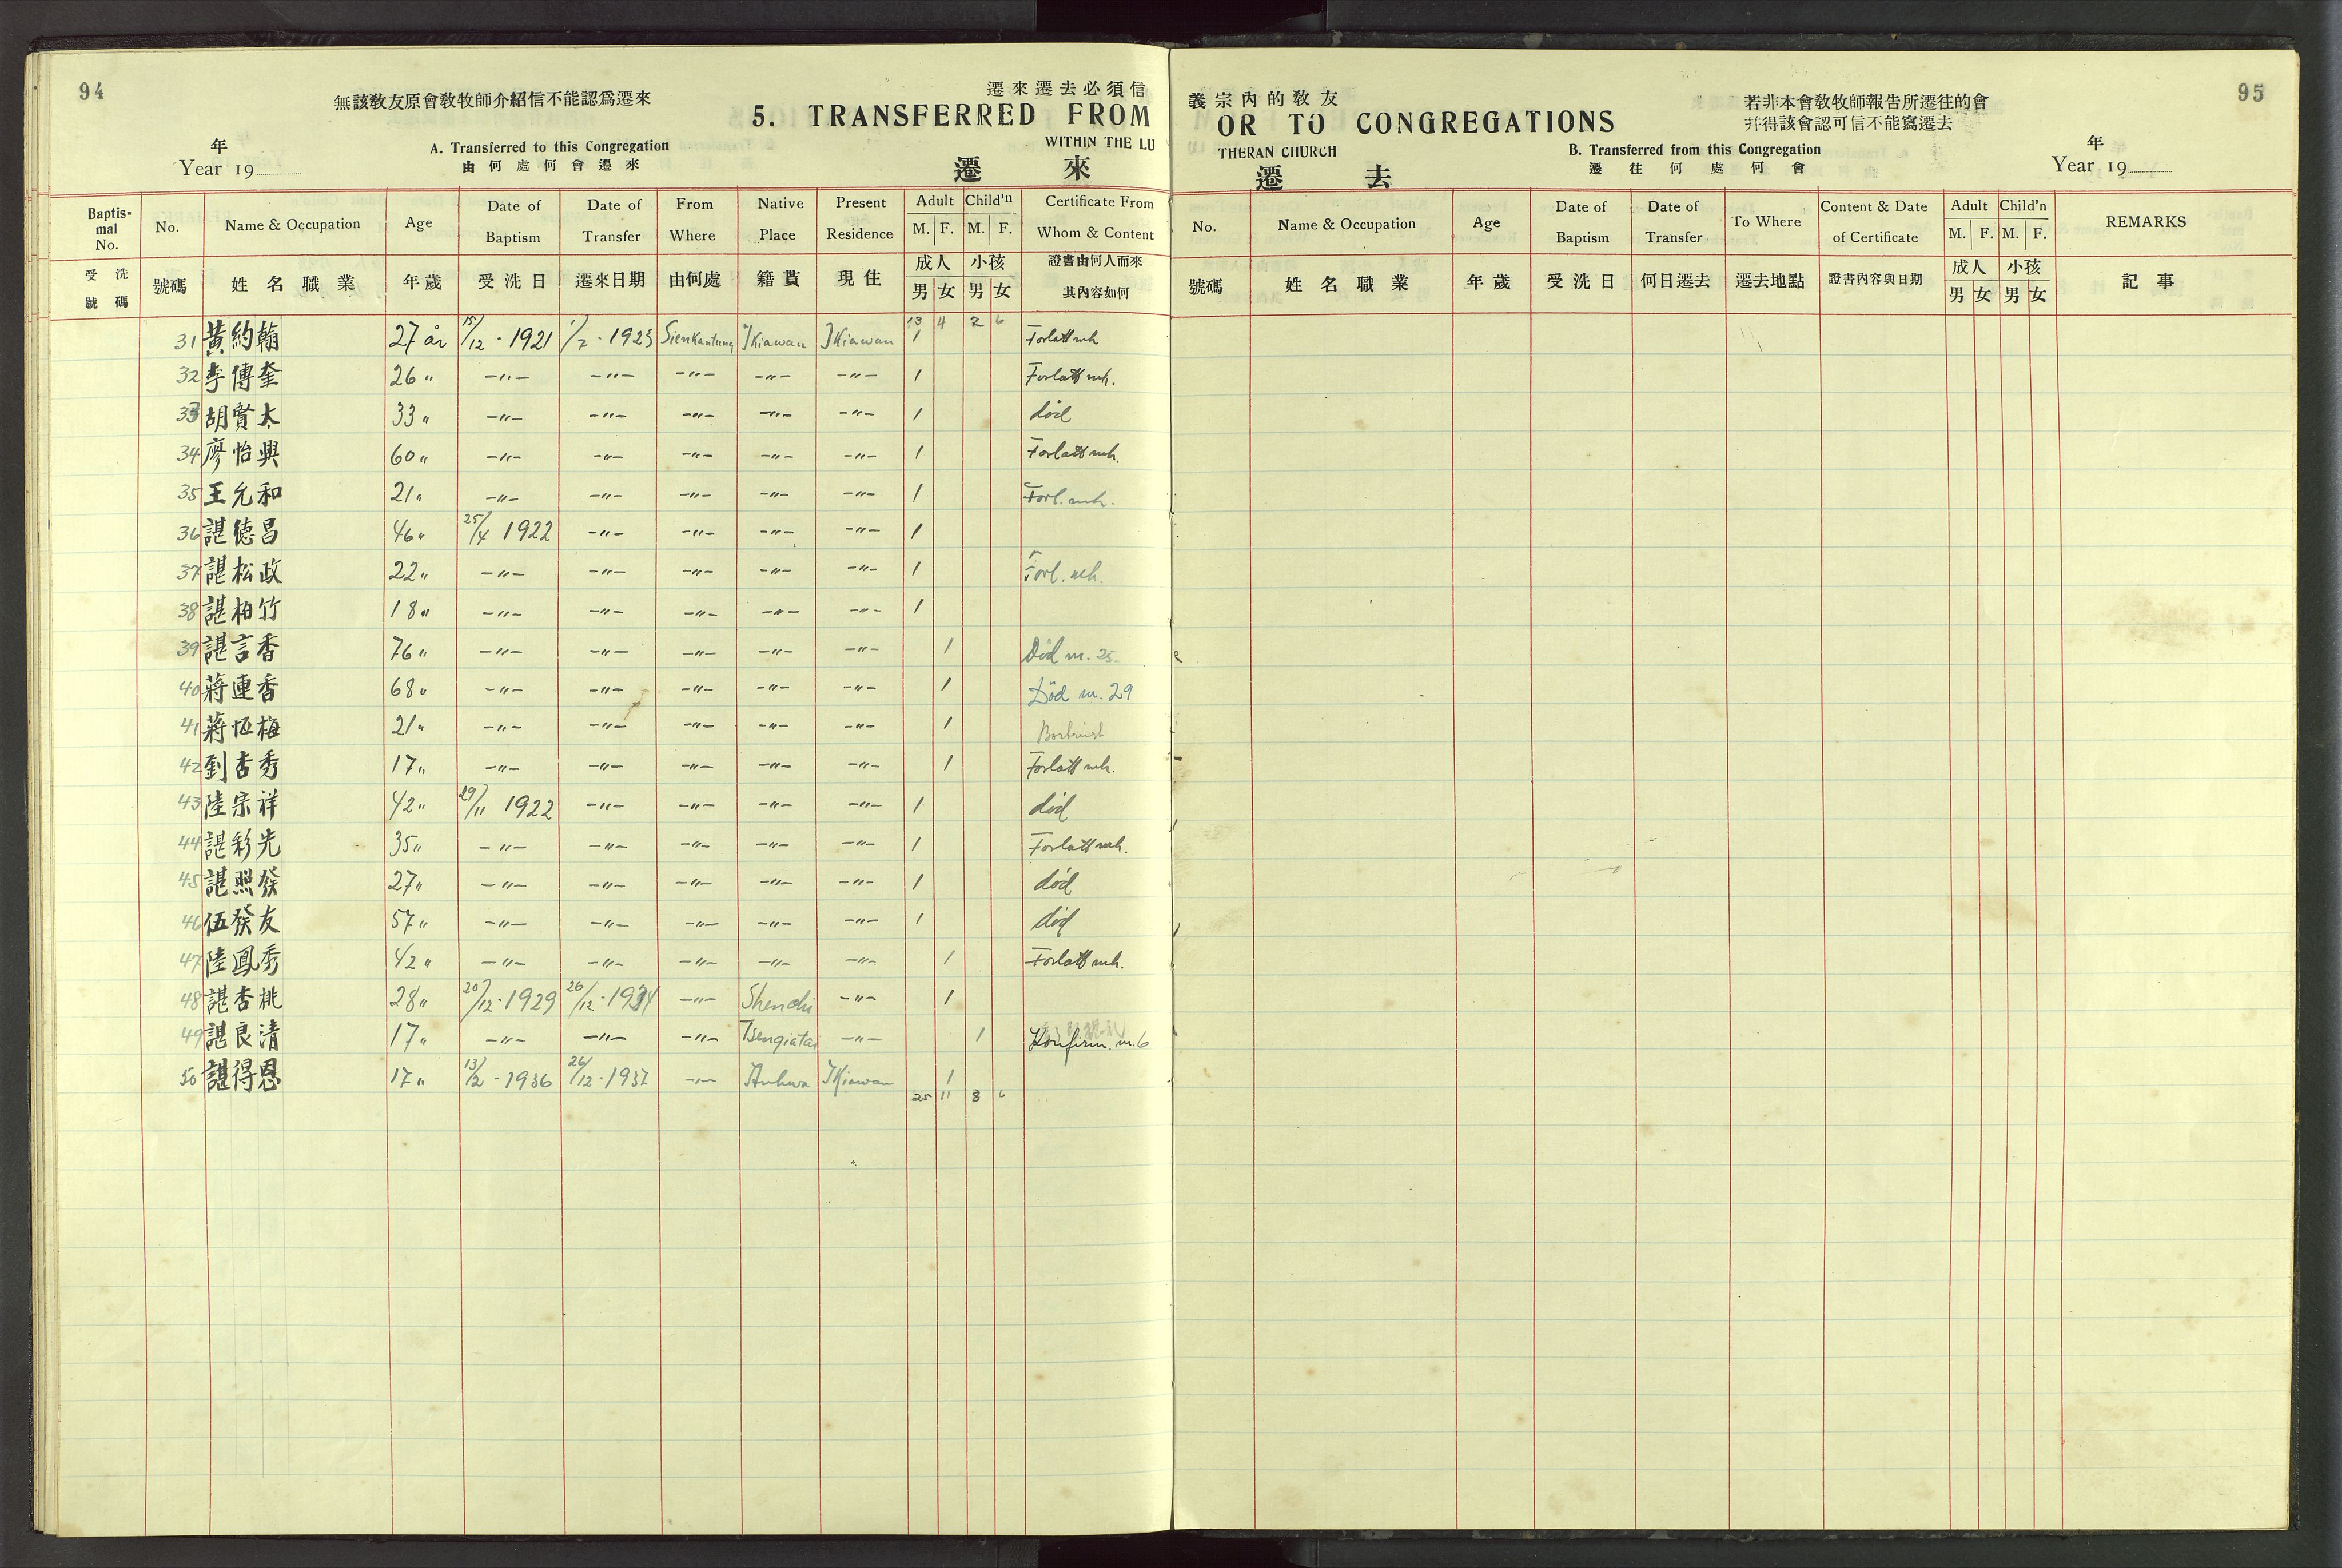 94
無該教友原會教牧師介紹信不能認爲遷來
遷來遷去必須信
5. TRANSFERRED FROM
WITHIN THE LU
年
Year 19
A. Transferred to this Congregation
由何處何會遷來
遷 來
Baptis-mal No. No. Name & Occupation Age Date of Baptism Date of Transfer From Where Native Place Present Residence Adult M. F. Child'n M. F. Certificate From Whom & Content
受洗號碼 號碼 姓名職業 年歲 受洗日 遷來日期 由何處 籍貫 現住 成人 男 女 小孩 男 女 證書由何人而來其內容如何
13 4 2 6
31 黃約翰 27 år 15/12 - 1921 1/7 - 1923 Sienkantung Tkiawan Tkiawan 1 Forlatt mh
32 李傳奎 26 " -"- -"- -"- -"- -"- 1 Forlatt mh.
33 胡賢太 33 " -"- -"- -"- -"- -"- 1 död
34 廖怡興 60 " -"- -"- -"- -"- -"- 1 Forlatt mh.
35 王允和 21 " -"- -"- -"- -"- -"- 1 Forl. mh.
36 諶德昌 46 " 25/4 1922 -"- -"- -"- -"- 1
37 諶松政 22 " -"- -"- -"- -"- -"- 1 Forl. mh.
38 諶柏竹 18 " -"- -"- -"- -"- -"- 1
39 諶言香 76 " -"- -"- -"- -"- -"- 1 Död m. 25
40 蔣連香 68 " -"- -"- -"- -"- -"- 1 Död m. 29
41 蔣恆梅 21 " -"- -"- -"- -"- -"- 1
42 劉杏秀 17 " -"- -"- -"- -"- -"- 1 Forlatt mh.
43 陸宗祥 42 " 29/11 1922 -"- -"- -"- -"- 1 död
44 諶彩光 35 " -"- -"- -"- -"- -"- 1 Forlatt mh.
45 諶照發 27 " -"- -"- -"- -"- -"- 1 död
46 伍發友 57 " -"- -"- -"- -"- -"- 1 död
47 陸鳳秀 42 " -"- -"- -"- -"- -"- 1 Forlatt mh.
48 諶杏桃 28 " 20/12 - 1929 26/12 - 1934 -"- Shenchi -"- 1
49 諶良清 17 " -"- -"- -"- Tsengiatai -"- 1 Konfirm. m. 6
50 諶得恩 17 " 13/2 - 1936 26/12 - 1937 -"- Anhwa Tkiawan 1
25 11 8 6
義宗內的敎友
OR TO CONGREGATIONS
THERAN CHURCH
遷 去
若非本會敎牧師報告所遷往的會
幷得該會認可信不能寫遷去
95
B. Transferred from this Congregation
遷往何處何會
年
Year 19
No. Name & Occupation Age Date of Baptism Date of Transfer To Where Content & Date of Certificate Adult M. F. Child'n M. F. REMARKS
號碼 姓名職業 年歲 受洗日 何日遷去 遷去地點 證書內容與日期 成人 男 女 小孩 男 女 記事